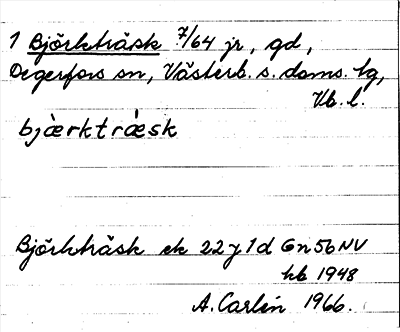 1 Björkträsk 7/64 jr, gd,
Degerfors sn, Västerb. s. doms. tg,
Vb. l.
bjæ̀rktrǽsk
Björkträsk ek 22 J 1 d Gn 56 NV
hb 1948
A. Carlén 1966.